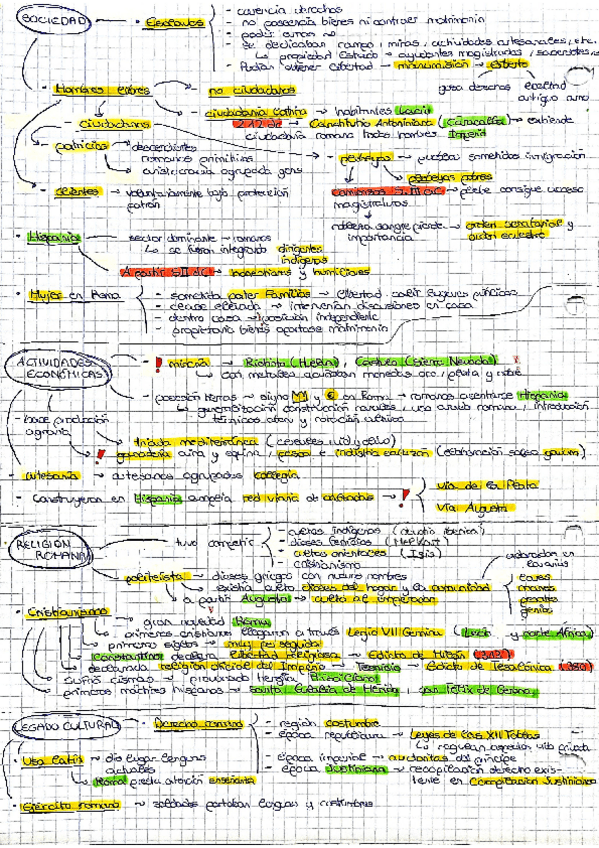 SOCIEDAD
Esclavos
- carencia derechos
- no poseencia bienes ni contraer matrimonio
- se dedicaban campo, minas, actividades artesanales, etc.
propiedad Estado → ayudantes magistrados, sacerdotes
- Podían obtener libertad → manumisión → liberto
goza derechos lealtad antiguo amo
· Hombres libres
- no ciudadanos
- ciudadanía latina → habitantes Lacio
212 dC → Constitutio Antoniniana (Caracalla) → extiende
ciudadanía romana todos hombres Imperio
- ciudadanos
- patricios → descendientes
romanos primitivos
aristocracia agrupada gens
- plebeyos → pueblos sometidos inmigración
plebeyos pobres
comienzos S. III aC → plebe consigue acceso
magistraturas
nobleza sangre pierde → orden senatorial y
importancia orden ecuestre
- clientes → voluntariamente bajo protección
patrón
· Hispania
sector dominante → romanos
se fueron integrando dirigentes
indígenas
A partir S. II dC → honestiores y humiliores
· Mujer en Roma
- sometida pater familias → libertad salir lugares públicos
- clase elevada → intervenían discusiones en casa
- dentro casa → posición independiente
- propietaria bienes aportase matrimonio
ACTIVIDADES ECONÓMICAS
- ! minería → Riotinto (Huelva), Cástulo (Sierra Nevada) !
con metales acuñaban monedas oro, plata y cobre
- posesión tierras → signo en Roma → romanos asentarse Hispania
generalización construcción canales, uso arado romano, introducción
técnicas abono y rotación cultivos
- base producción
agraria
tríada mediterránea (cereales vid y olivo)
! ganadería ovina y equina, pesca e industria salazón (elaboración salsa garum)
· artesanía → artesanos agrupados collegia
· Construyeron en Hispania amplia red viaria de calzadas → !
Vía de la Plata
Vía Augusta
RELIGIÓN ROMANA
tuvo competir
- cultos indígenas
- dioses fenicios (Melkart)
- cultos orientales (Isis)
- cristianismo
politeísta → dioses griegos con nuevo nombres
existía culto dioses del hogar y la comunidad
adorados en lararios
lares
manes
penates
genios
a partir Augusto → culto al emperador
· Cristianismo
gran novedad Roma
primeros cristianos llegaron a través Legio VII Gemina (León y norte África)
primeros siglos → muy perseguido
Constantino declara libertad religiosa → Edicto de Milán (313)
declarada religión oficial del Imperio → Teodosio → Edicto de Tesalónica (380)
sufrió cismas → provocado herejía Prisciliano
primeros mártires hispanos → Santa Eulalia de Mérida, San Félix de Gerona
LEGADO CULTURAL
· Derecho romano
- región costumbre
- época republicana → Leyes de las XII Tablas
regulan aspectos vida privada
- época imperial → auctoritas del príncipe
- época Justiniana → recopilación derecho exis-
tente en Compilación Justiniana
· Uso latín → dio lugar lenguas
actuales
Roma presta atención enseñanza
· Ejército romano → soldados portaban lenguas y costumbres